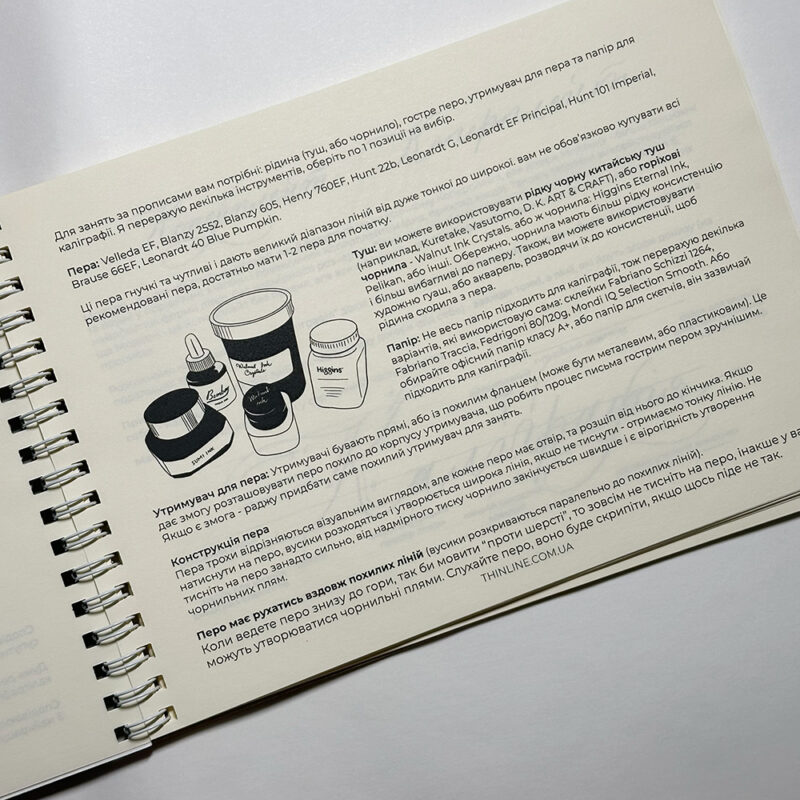 Для занять за прописами вам потрібні: рідина (туш, або чорнило), гостре перо, утримувач для пера та папір для
каліграфії. Я перерахую декілька інструментів, оберіть по 1 позиції на вибір.
Пера: Velleda EF, Blanzy 2552, Blanzy 605, Henry 760EF, Hunt 22b, Leonardt G, Leonardt EF Principal, Hunt 101 Imperial,
Brause 66EF, Leonardt 40 Blue Pumpkin.
Ці пера гнучкі та чутливі і дають великий діапазон ліній від дуже тонкої до широкої. вам не обов'язково купувати всі
рекомендовані пера, достатньо мати 1-2 пера для початку.
Туш: ви можете використовувати рідку чорну китайську туш
(наприклад, Kuretake, Yasutomo, D. K. ART & CRAFT), або горіхові
чорнила - Walnut Ink Crystals, або ж чорнила: Higgins Eternal Ink,
Pelikan, або інші. Обережно, чорнила мають більш рідку консистенцію
і більш вибагливі до паперу. Також, ви можете використовувати
художню гуаш, або акварель, розводячи їх до консистенції, щоб
рідина сходила з пера.
Папір: Не весь папір підходить для каліграфії, тож перерахую декілька
варіантів, які використовую сама: склейки Fabriano Schizzi 1264,
Fabriano Traccia, Fedrigoni 80/120g, Mondi IQ Selection Smooth. Або
обирайте офісний папір класу А+, або папір для скетчів, він зазвичай
підходить для каліграфії.
Walnut Ink
Crystals
Higgins
Walnut
ink
SUMI INK
Утримувач для пера: Утримувачі бувають прямі, або із похилим фланцем (може бути металевим, або пластиковим). Це
дає змогу розташовувати перо похило до корпусу утримувача, що робить процес письма гострим пером зручнішим.
Якщо є змога - раджу придбати саме похилий утримувач для занять.
Конструкція пера
Пера трохи відрізняються візуальним виглядом, але кожне перо має отвір, та розщіп від нього до кінчика. Якщо
натиснути на перо, вусики розходяться і утворюється широка лінія, якщо не тиснути - отримаємо тонку лінію. Не
тисніть на перо занадто сильно, від надмірного тиску чорнило закінчується швидше і є вірогідність утворення
чорнильних плям.
Перо має рухатись вздовж похилих ліній (вусики розкриваються паралельно до похилих ліній).
Коли ведете перо знизу до гори, так би мовити "проти шерсті", то зовсім не тисніть на перо, інакше у ва
можуть утворюватися чорнильні плями. Слухайте перо, воно буде скрипіти, якщо щось піде не так.
THINLINE.COM.UA